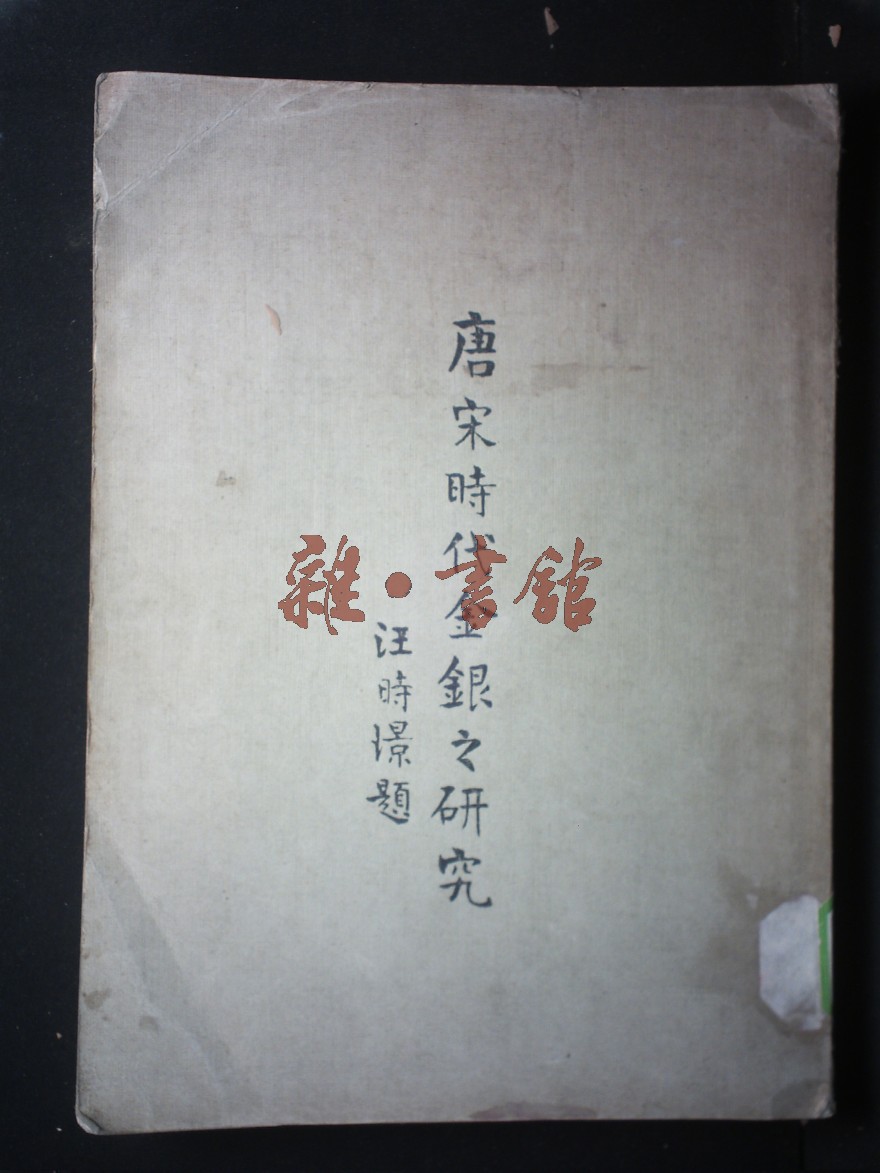 唐宋時代金銀之研究
汪時璟題
雜·書館